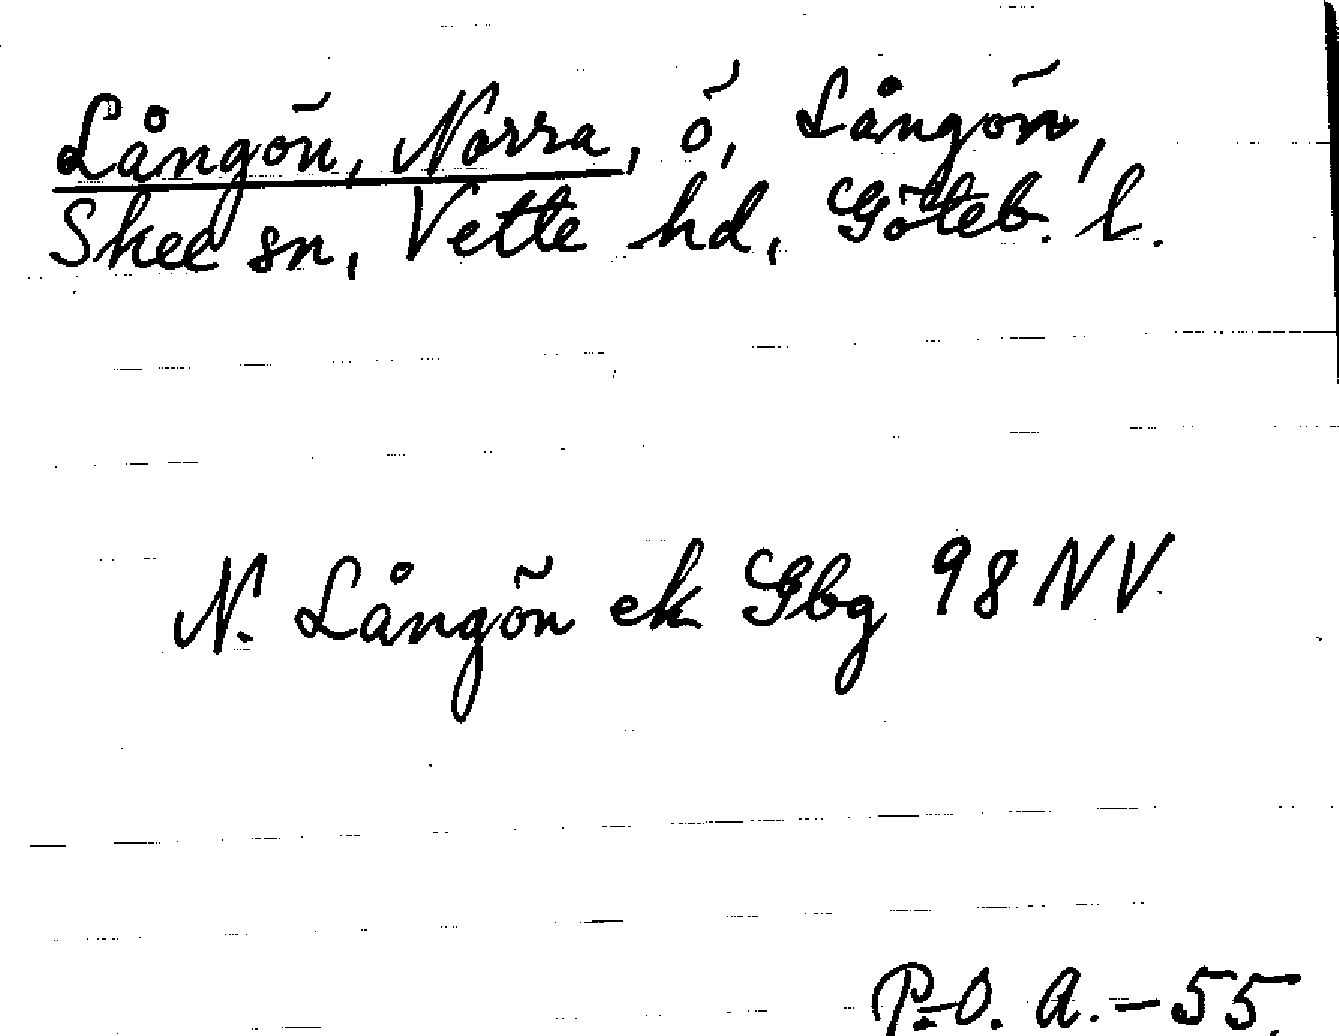 Långön, Norra, ö, Långön,
Skee sn, Vette hd, Göteb. l.
N. Långön ek Gbg 98 NV
P.-O. A. - 55.